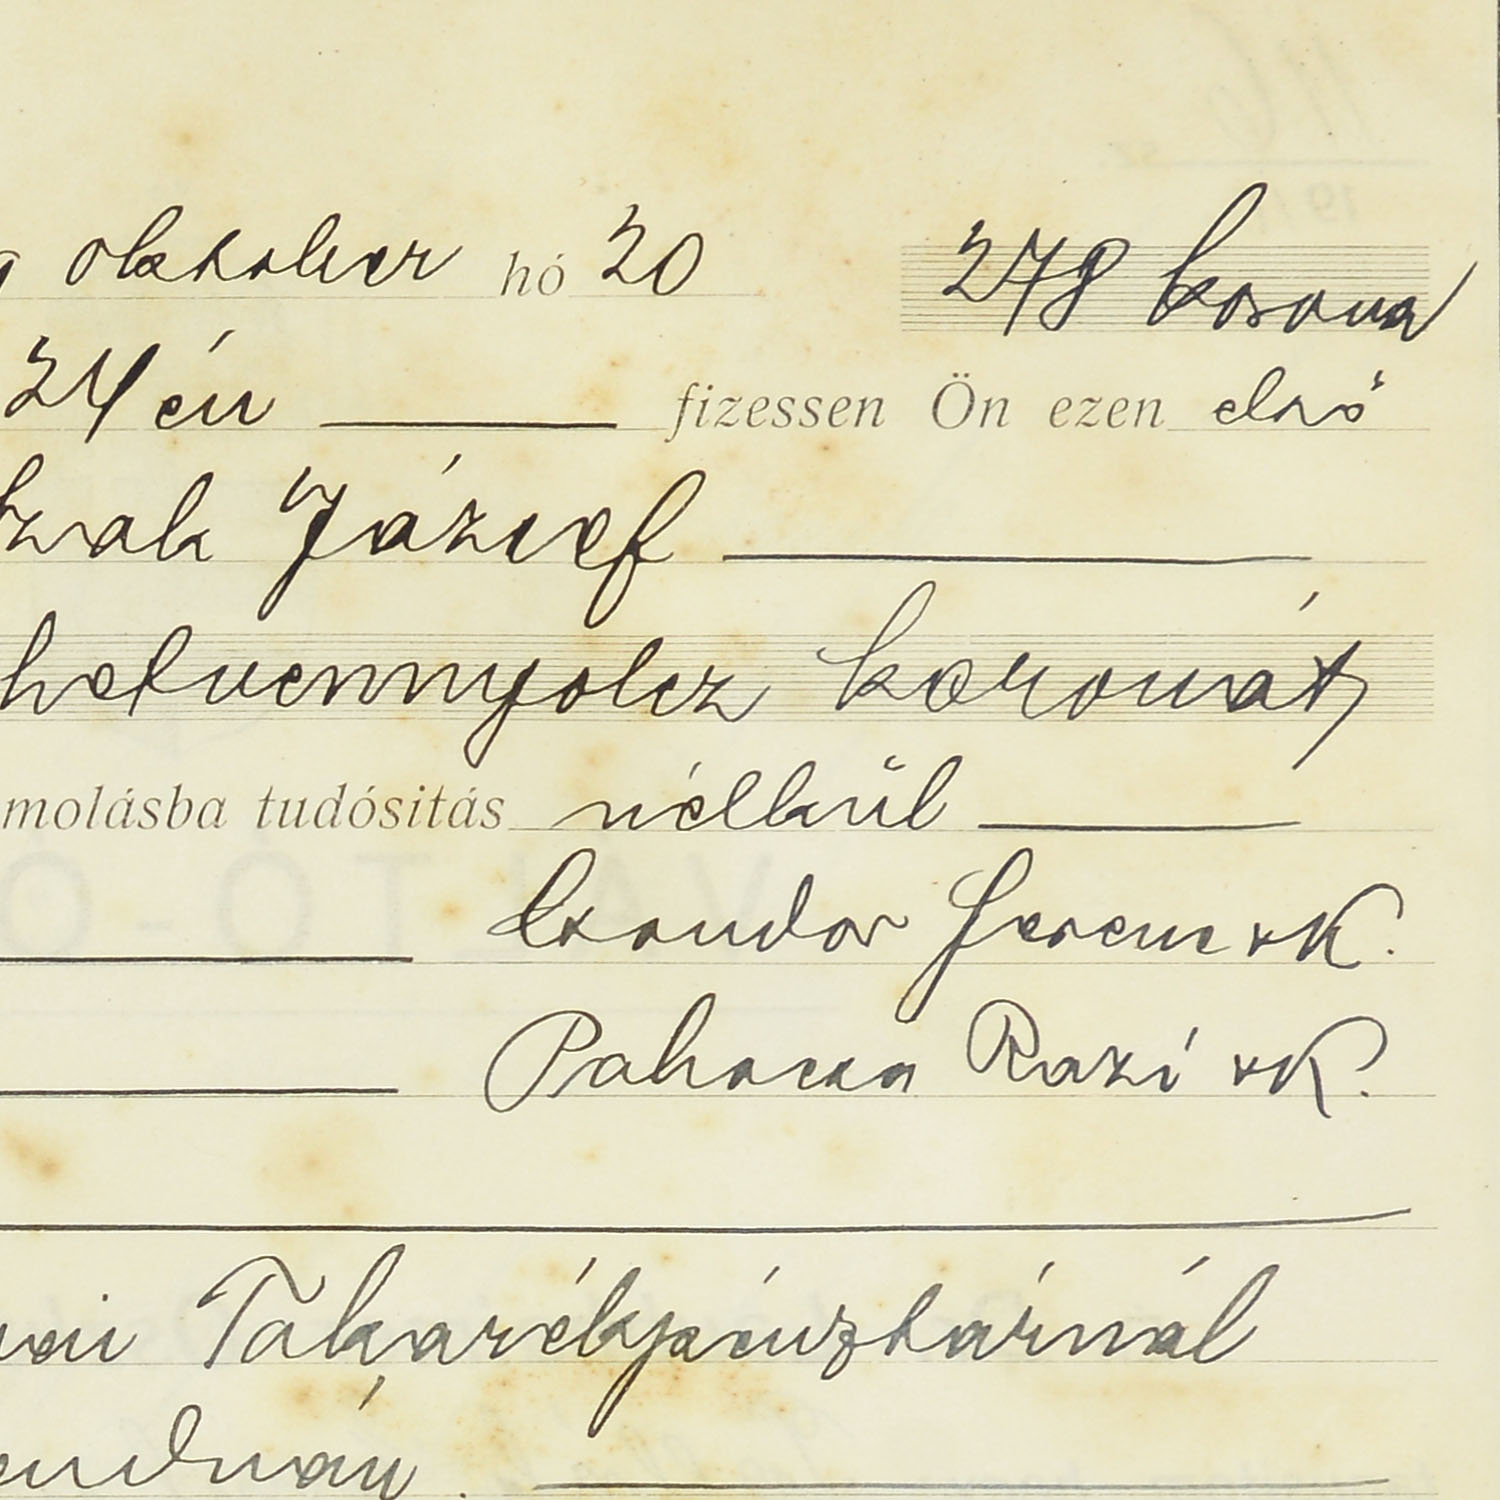 október hó 20 278 korona
24 én fizessen Ön ezen első
József
hetvennyolcz koronát
molásba tudósitás nélkül
Csandor Ferenc sk.
Rozi sk.
Takarékpénztárnál